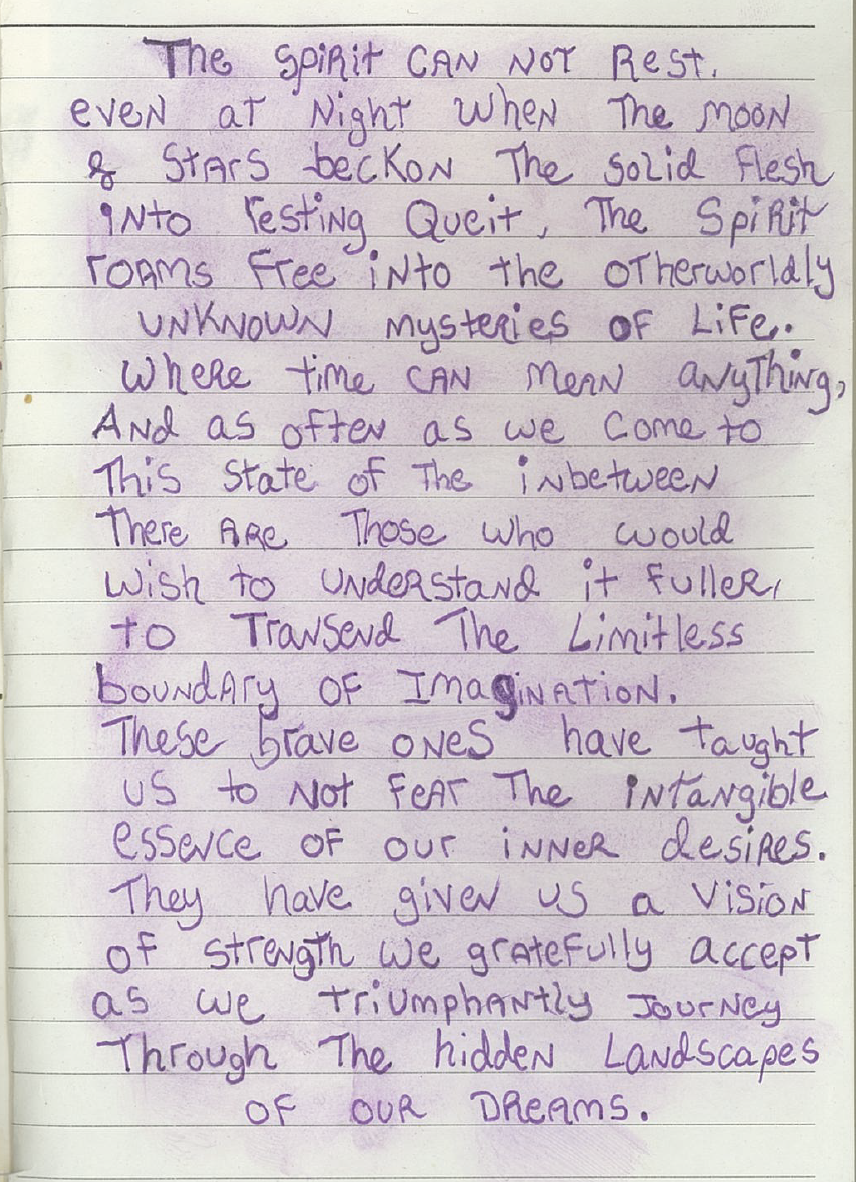 The Spirit CAN NOT Rest.
eveN at Night wheN The MOON
& StArs beckoN The solid flesh
iNto resting Queit, The SpiRit
rOAMs free iNto the OTherworldly
UNKNOWN MysteRies OF LiFe.
WheRe time CAN MeAN aNyThiNg,
ANd as ofteN as we Come to
This State of The iNbetweeN
There ARe Those who would
Wish to UNdeRstaNd it FulleR,
to TraNseNd The Limitless
bOUNdARy OF ImagiNATiON.
These brave ONeS have taught
US to NOt FeAr The iNtaNgible
esseNce OF our iNNeR desiRes.
They have giveN US a VisioN
OF streNgth we grAteFully accept
as we triUmphANtly JourNey
Through The hiddeN LaNdscApes
OF OUR DReAMs.